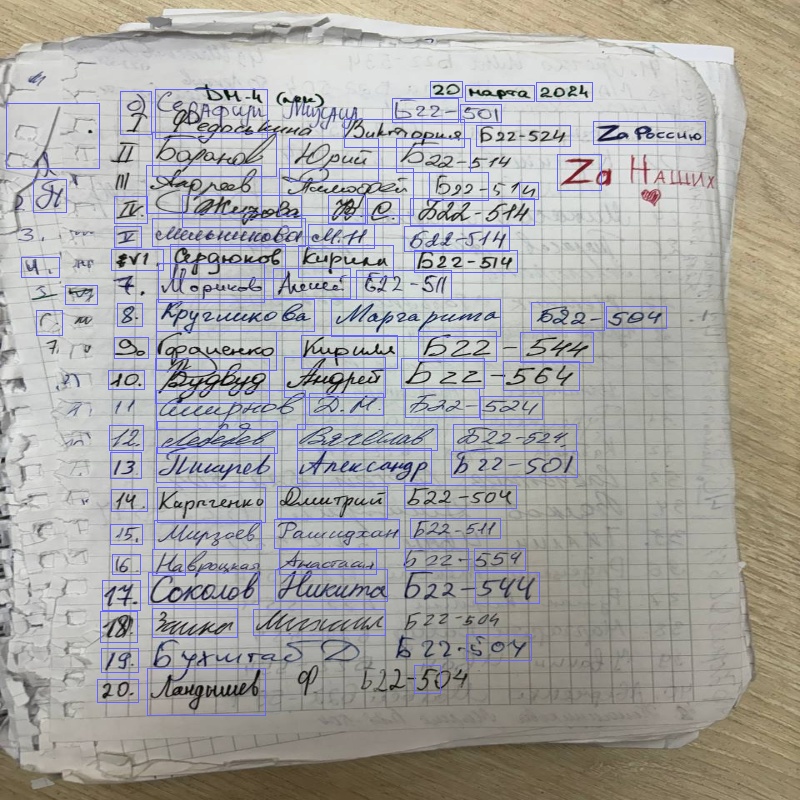 ДМ-4 20 марта 2024
0) Серафим Михаил Б22-501
I Федоськина Виктория Б22-524 Zа Россию
II Баранов Юрий Б22-514 Zа Наших
III Андреев Тимофей Б22-514
IV. Жизова Б22-514
V Мельникова М.Н Б22-514
VI. Сердюков Кирилл Б22-514
7. Мориков Алексей Б22-511
8. Кругликова Маргарита Б22-504
9. Гордиенко Кирилл Б22-544
10. Вудвуд Андрей Б22-564
11 Смирнов Д.М. Б22-524
12. Лебедев Вячеслав Б22-524
13 Пишчрев Александр Б22-501
14. Карпченко Дмитрий Б22-504
15. Мирзоев Рашидхан Б22-511
16. Навроцкая Анастасия Б22-554
17. Соколов Никита Б22-544
18. Михаил Б22-504
19. Бухштаб Д Б22-504
20. Ландышев Ф Б22-504